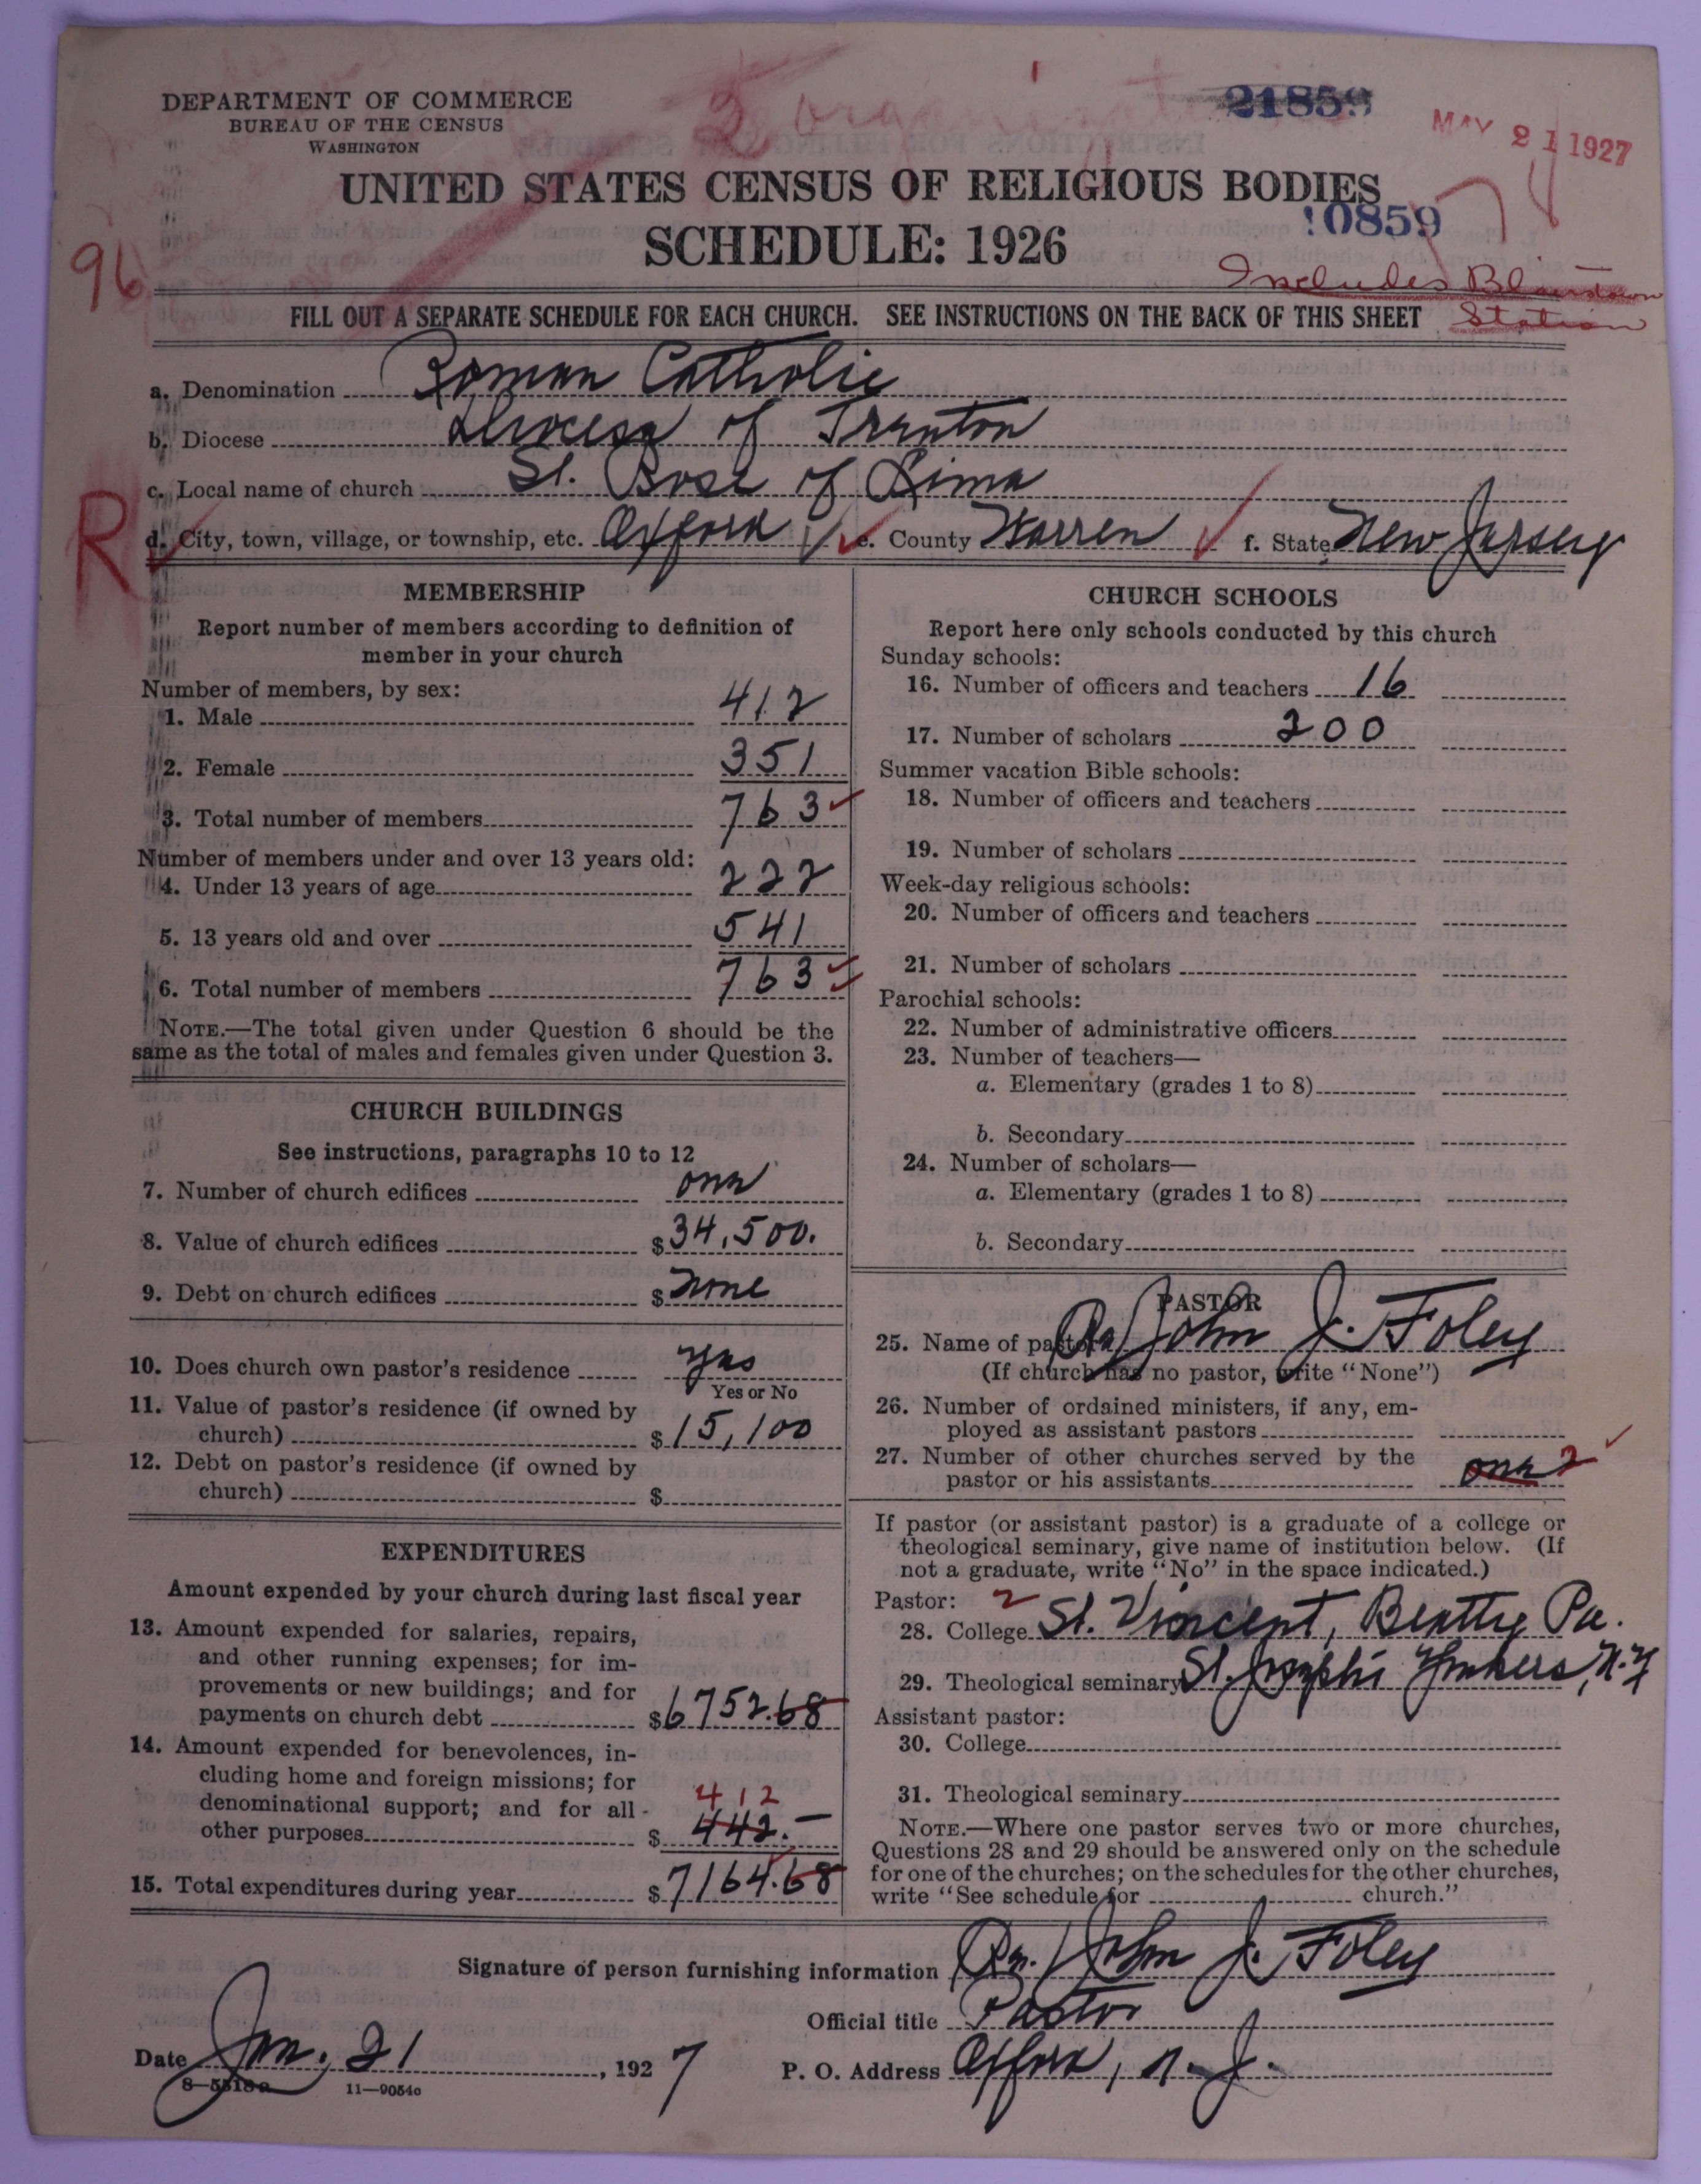 DEPARTMENT OF COMMERCE
BUREAU OF THE CENSUS
WASHINGTON
21859
MAY 21 1927
UNITED STATES CENSUS OF RELIGIOUS BODIES
10859
SCHEDULE: 1926
96
Includes Blairstown
Station
FILL OUT A SEPARATE SCHEDULE FOR EACH CHURCH. SEE INSTRUCTIONS ON THE BACK OF THIS SHEET
a. Denomination Roman Catholic
b. Diocese Diocese of Trenton
c. Local name of church St. Rose of Lima
R
d. City, town, village, or township, etc. Oxford e. County Warren f. State New Jersey
MEMBERSHIP
Report number of members according to definition of
member in your church
Number of members, by sex:
1. Male 412
2. Female 351
3. Total number of members 763
Number of members under and over 13 years old:
4. Under 13 years of age 222
5. 13 years old and over 541
6. Total number of members 763
NOTE.—The total given under Question 6 should be the
same as the total of males and females given under Question 3.
CHURCH BUILDINGS
See instructions, paragraphs 10 to 12
7. Number of church edifices one
8. Value of church edifices $34,500.
9. Debt on church edifices $none
10. Does church own pastor's residence yes
Yes or No
11. Value of pastor's residence (if owned by
church) $15,100
12. Debt on pastor's residence (if owned by
church) $
EXPENDITURES
Amount expended by your church during last fiscal year
13. Amount expended for salaries, repairs,
and other running expenses; for im-
provements or new buildings; and for
payments on church debt $6752.68
14. Amount expended for benevolences, in-
cluding home and foreign missions; for
denominational support; and for all
412
other purposes $442.—
15. Total expenditures during year $7164.68
CHURCH SCHOOLS
Report here only schools conducted by this church
Sunday schools:
16. Number of officers and teachers 16
17. Number of scholars 200
Summer vacation Bible schools:
18. Number of officers and teachers
19. Number of scholars
Week-day religious schools:
20. Number of officers and teachers
21. Number of scholars
Parochial schools:
22. Number of administrative officers
23. Number of teachers—
a. Elementary (grades 1 to 8)
b. Secondary
24. Number of scholars—
a. Elementary (grades 1 to 8)
b. Secondary
PASTOR
25. Name of pastor Rev John J. Foley
(If church has no pastor, write "None")
26. Number of ordained ministers, if any, em-
ployed as assistant pastors
27. Number of other churches served by the
pastor or his assistants one 2
If pastor (or assistant pastor) is a graduate of a college or
theological seminary, give name of institution below. (If
not a graduate, write "No" in the space indicated.)
Pastor: 2
28. College St. Vincent, Beatty Pa.
29. Theological seminary St. Josephs Yonkers, N.Y
Assistant pastor:
30. College
31. Theological seminary
NOTE.—Where one pastor serves two or more churches,
Questions 28 and 29 should be answered only on the schedule
for one of the churches; on the schedules for the other churches,
write "See schedule for church."
Signature of person furnishing information Rev. John J. Foley
Official title Pastor
Date Jan. 21, 1927 P. O. Address Oxford, N. J.
8—5518a 11—9054c